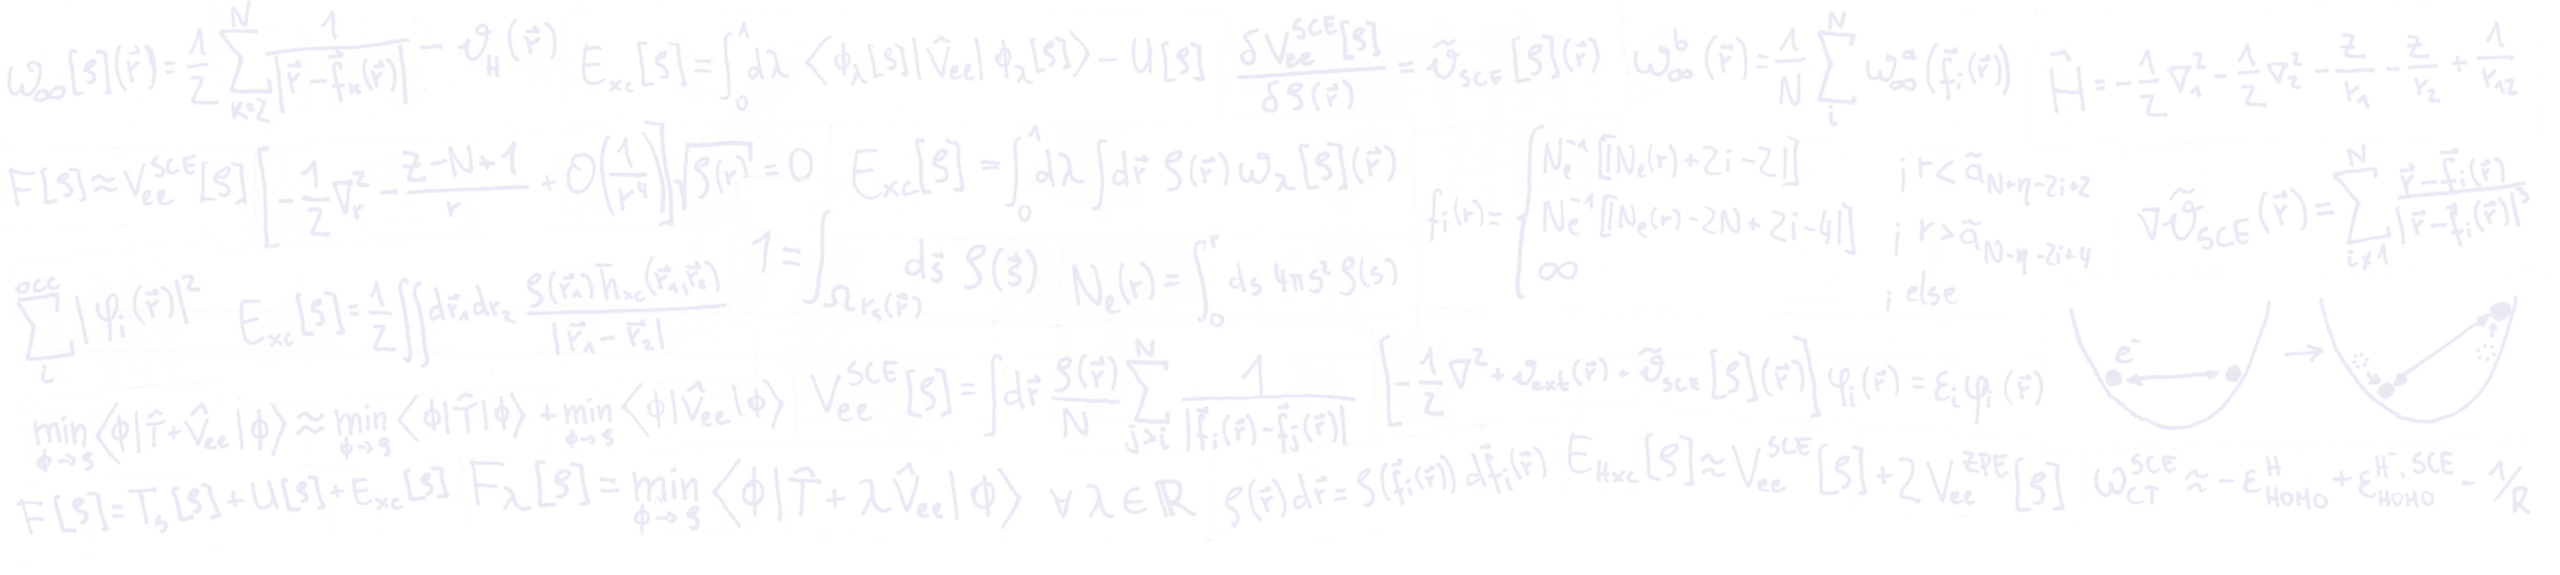 ω∞[ρ](r⃗) = 1/2 ∑_{k=2}^{N} 1/|r⃗ - f⃗_k(r⃗)| - v_H(r⃗)   E_xc[ρ] = ∫_0^1 dλ ⟨ϕ_λ[ρ]|V̂_ee|ϕ_λ[ρ]⟩ - U[ρ]   δV_ee^SCE[ρ]/δρ(r⃗) = ṽ_SCE[ρ](r⃗)   ω_∞^b(r⃗) = 1/N ∑_i^N ω_∞^a(f⃗_i(r⃗))   Ĥ = -1/2 ∇_1^2 - 1/2 ∇_2^2 - Z/r_1 - Z/r_2 + 1/r_12
F[ρ] ≈ V_ee^SCE[ρ]   [-1/2 ∇_r^2 - (Z-N+1)/r + O(1/r^4)] √ρ(r) = 0   E_xc[ρ] = ∫_0^1 dλ ∫ dr⃗ ρ(r⃗) ω_λ[ρ](r⃗)   f_i(r) = { N_e^-1[|N_e(r)+2i-2|] ; r < ã_{N+η-2i+2}
N_e^-1[|N_e(r)-2N+2i-4|] ; r > ã_{N-η-2i+4}
∞ ; else   ∇ṽ_SCE(r⃗) = ∑_{i≠1}^{N} (r⃗ - f⃗_i(r⃗))/|r⃗ - f⃗_i(r⃗)|^3
∑_i^occ |φ_i(r⃗)|^2   E_xc[ρ] = 1/2 ∫∫ dr⃗_1 dr_2 ρ(r⃗_1) h̄_xc(r⃗_1, r⃗_2)/|r⃗_1 - r⃗_2|   1 = ∫_{Ω r_s(r⃗)} ds⃗ ρ(s⃗)   N_e(r) = ∫_0^r ds 4πs^2 ρ(s)
e^-
min_{ϕ→ρ} ⟨ϕ|T̂+V̂_ee|ϕ⟩ ≈ min_{ϕ→ρ} ⟨ϕ|T̂|ϕ⟩ + min_{ϕ→ρ} ⟨ϕ|V̂_ee|ϕ⟩   V_ee^SCE[ρ] = ∫ dr⃗ ρ(r⃗)/N ∑_{j>i}^{N} 1/|f⃗_i(r⃗) - f⃗_j(r⃗)|   [-1/2 ∇^2 + v_ext(r⃗) + ṽ_SCE[ρ](r⃗)] φ_i(r⃗) = ε_i φ_i(r⃗)
F[ρ] = T_s[ρ] + U[ρ] + E_xc[ρ]   F_λ[ρ] = min_{ϕ→ρ} ⟨ϕ|T̂ + λV̂_ee|ϕ⟩ ∀ λ ∈ ℝ   ρ(r⃗) dr⃗ = ρ(f⃗_i(r⃗)) df⃗_i(r⃗)   E_Hxc[ρ] ≈ V_ee^SCE[ρ] + 2 V_ee^ZPE[ρ]   ω_CT^SCE ≈ -ε_HOMO^H + ε_HOMO^{H^-,SCE} - 1/R